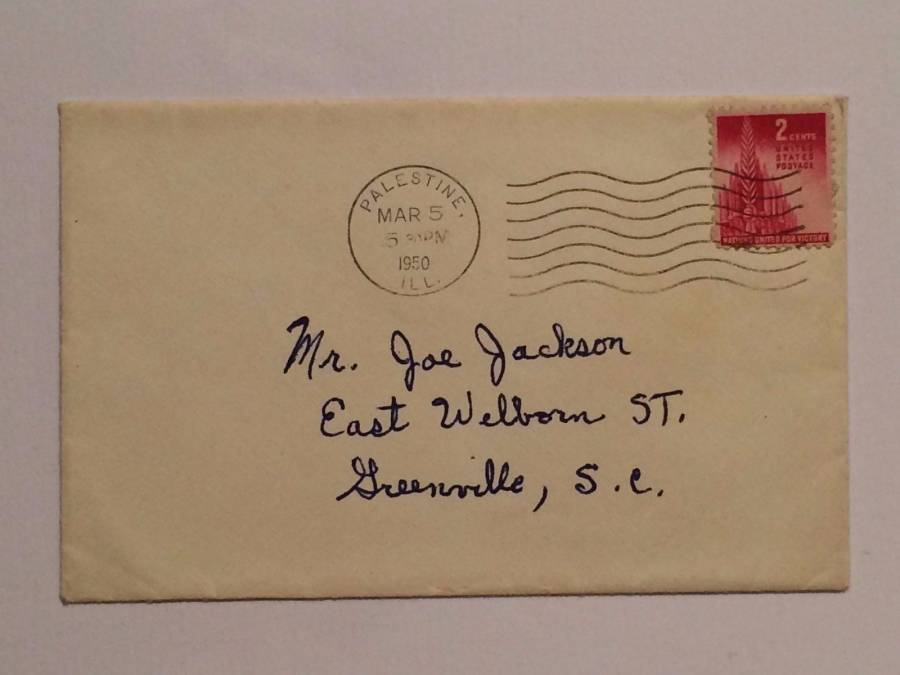 PALESTINE,
MAR 5
5 PM
1950
ILL.
2 CENTS
UNITED
STATES
POSTAGE
NATIONS UNITED FOR VICTORY
Mr. Joe Jackson
East Welborn ST.
Greenville, S.C.